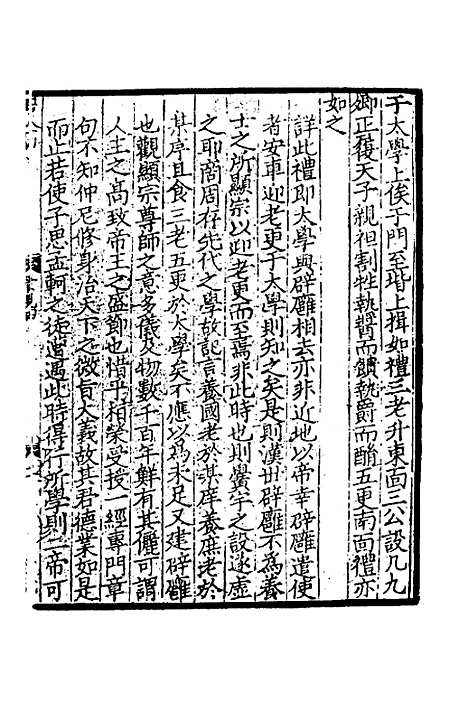 于太學上俟于門至階上揖如禮三老升東面三公設几九
卿正履天子親袒割牲執醬而饋執爵而酳五更南面禮亦
如之
詳此禮即太學與辟雝相去亦非近地以帝幸辟雝遣使
者安車迎老更于太學則知之矣是則漢世辟雝不為養
士之所顯宗以迎老更而至焉非此時也則黌宇之設遂虛
之耶商周存先代之學故記言養國老於某庠養庶老於
某序且食三老五更於太學矣不應以為未足又建辟雝
也觀顯宗尊師之意多儀及物數千百年鮮有其儷可謂
人主之高致帝王之盛節也惜乎桓榮受授一經專門章
句不知仲尼修身治天下之微旨大義故其君德業如是
而止若使子思孟軻之徒遭遇此時得行所學則二帝可